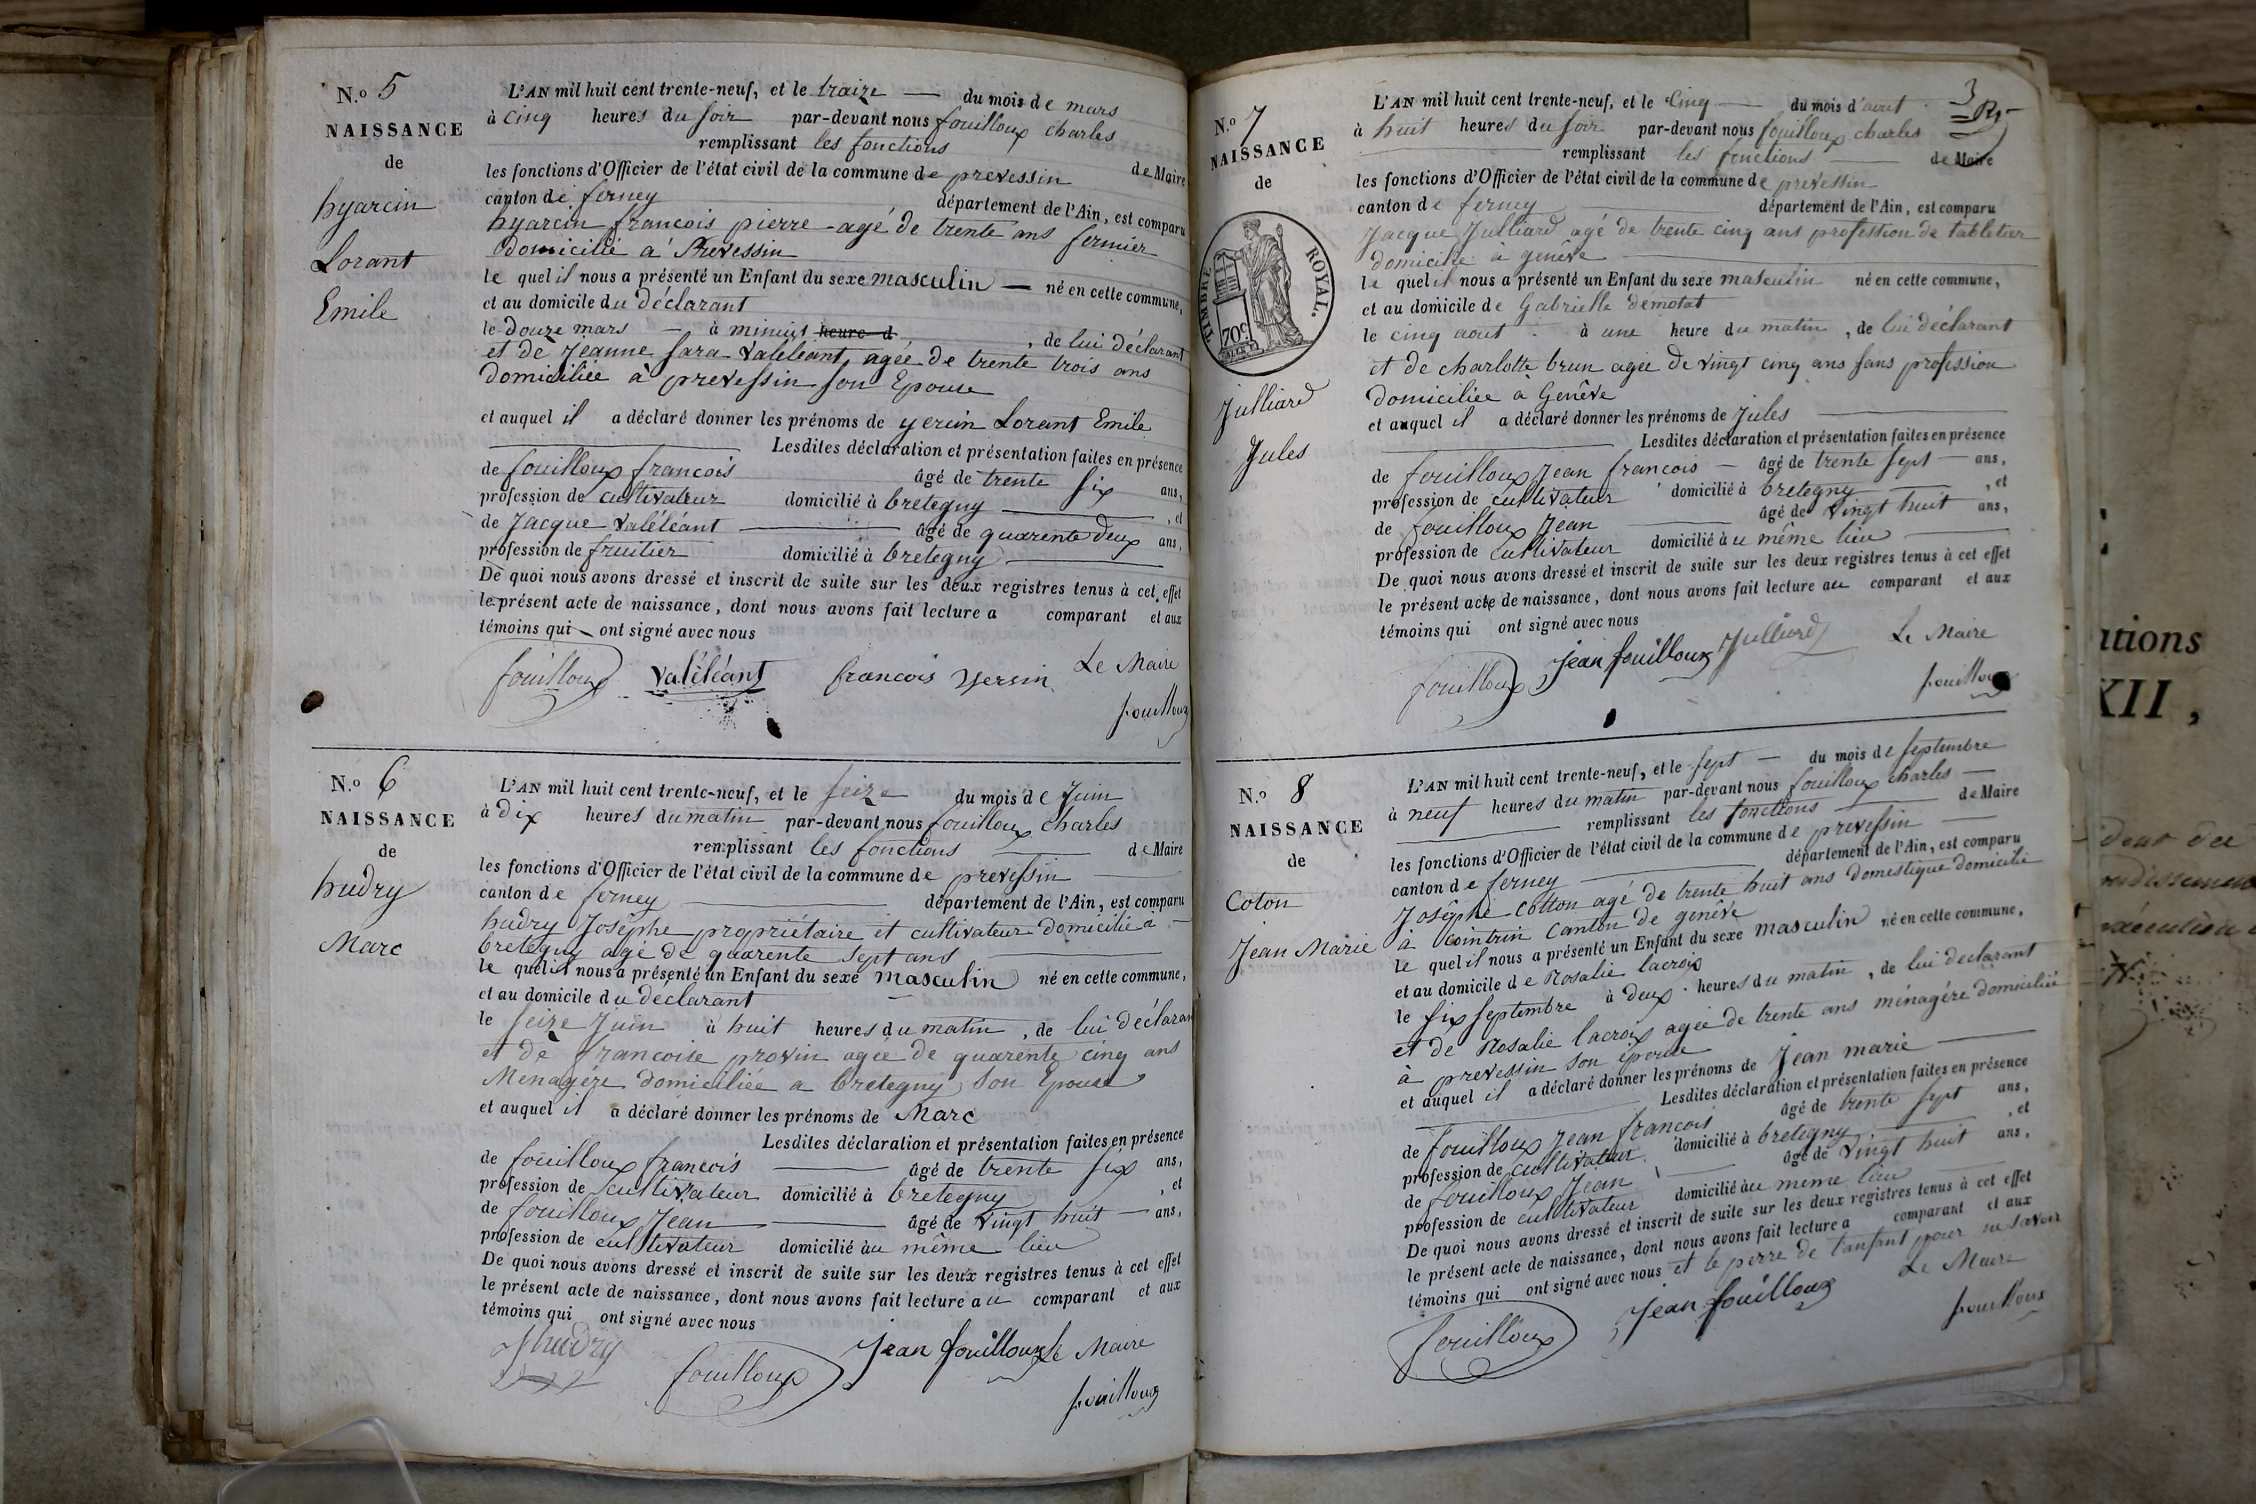 N.o 5
NAISSANCE
de
hyarcin
Lorant
Emile
L'AN mil huit cent trente-neuf, et le traize — du mois de mars
à cinq heures du soir par-devant nous fouilloux charles
remplissant les fonctions de Maire
les fonctions d'Officier de l'état civil de la commune de prevessin
canton de ferney département de l'Ain, est comparu
hyarcin francois pierre agé de trente ans fermier
domicilié a Prevessin
le quel il nous a présenté un Enfant du sexe masculin — né en cette commune,
et au domicile du déclarant
le douze mars — à minuit heure d , de lui déclarant
et de Jeanne Sara Valéléant, agée de trente trois ans
domiciliée à prevessin son Epouse
et auquel il a déclaré donner les prénoms de yersin Lorant Emile
Lesdites déclaration et présentation faites en présence
de fouilloux francois âgé de trente six ans,
profession de cultivateur domicilié à bretegny , et
de Jacque Valéléant âgé de quarente deux ans,
profession de fruitier domicilié à bretegny
De quoi nous avons dressé et inscrit de suite sur les deux registres tenus à cet effet
le présent acte de naissance, dont nous avons fait lecture a comparant et aux
témoins qui ont signé avec nous
fouilloux Valéléant francois yersin Le Maire
fouilloux
N.o 6
NAISSANCE
de
hudry
Marc
L'AN mil huit cent trente-neuf, et le seize du mois de Juin
à dix heures du matin par-devant nous fouilloux charles
remplissant les fonctions de Maire
les fonctions d'Officier de l'état civil de la commune de prevessin
canton de ferney département de l'Ain, est comparu
hudry Josephe propriétaire et cultivateur domicilié a
bretegny agé de quarente sept ans
le quel il nous a présenté un Enfant du sexe masculin né en cette commune,
et au domicile du déclarant
le seize Juin à huit heures du matin, de lui déclarant
et de francoise provin agée de quarente cinq ans
Menagére domiciliée a bretegny son Epouse
et auquel il a déclaré donner les prénoms de Marc
Lesdites déclaration et présentation faites en présence
de fouilloux francois âgé de trente six ans,
profession de cultivateur domicilié à bretegny , et
de fouilloux Jean âgé de vingt huit ans,
profession de cultivateur domicilié au même lieu
De quoi nous avons dressé et inscrit de suite sur les deux registres tenus à cet effet
le présent acte de naissance, dont nous avons fait lecture au comparant et aux
témoins qui ont signé avec nous
Jhudry fouilloux Jean fouilloux Le Maire
fouilloux
3
N.o 7
NAISSANCE
de
TIMBRE ROYAL.
70c
Julliard
Jules
L'AN mil huit cent trente-neuf, et le cinq — du mois d'aout
à huit heures du soir par-devant nous fouilloux charles
remplissant les fonctions — de Maire
les fonctions d'Officier de l'état civil de la commune de prevessin
canton de ferney département de l'Ain, est comparu
Jacque Julliard agé de trente cinq ans profession de tabletier
domicilié à genêve
le quel il nous a présenté un Enfant du sexe masculin né en cette commune,
et au domicile de Gabrielle demotat
le cinq aout à une heure du matin, de lui déclarant
et de charlotte brun agée de vingt cinq ans sans profession
domiciliée à Genêve
et auquel il a déclaré donner les prénoms de Jules
Lesdites déclaration et présentation faites en présence
de fouilloux Jean francois — âgé de trente sept — ans,
profession de cultivateur domicilié à bretegny , et
de fouilloux Jean âgé de vingt huit ans,
profession de cultivateur domicilié au même lieu
De quoi nous avons dressé et inscrit de suite sur les deux registres tenus à cet effet
le présent acte de naissance, dont nous avons fait lecture au comparant et aux
témoins qui ont signé avec nous
fouilloux Jean fouilloux Julliard Le Maire
fouilloux
N.o 8
NAISSANCE
de
Coton
Jean Marie
L'AN mil huit cent trente-neuf, et le sept — du mois de septembre
à neuf heures du matin par-devant nous fouilloux charles —
remplissant les fonctions de Maire
les fonctions d'Officier de l'état civil de la commune de prevessin
canton de ferney département de l'Ain, est comparu
Joséphe cotton agé de trente huit ans domestique domicilié
à cointrin canton de genêve
le quel il nous a présenté un Enfant du sexe masculin né en cette commune,
et au domicile de Rosalie lacroix
le six septembre à deux heures du matin, de lui declarant
et de Rosalie lacroix agée de trente ans ménagére domiciliée
à prevessin son épouse
et auquel il a déclaré donner les prénoms de Jean marie
Lesdites déclaration et présentation faites en présence
de fouilloux Jean francois âgé de trente sept ans,
profession de cultivateur domicilié à bretegny , et
de fouilloux Jean âgé de vingt huit ans,
profession de cultivateur domicilié au meme lieu
De quoi nous avons dressé et inscrit de suite sur les deux registres tenus à cet effet
le présent acte de naissance, dont nous avons fait lecture a comparant et aux
témoins qui ont signé avec nous et le perre de l'anfant pour ne savoir
fouilloux Jean fouilloux Le Maire
fouilloux
ations
XII,